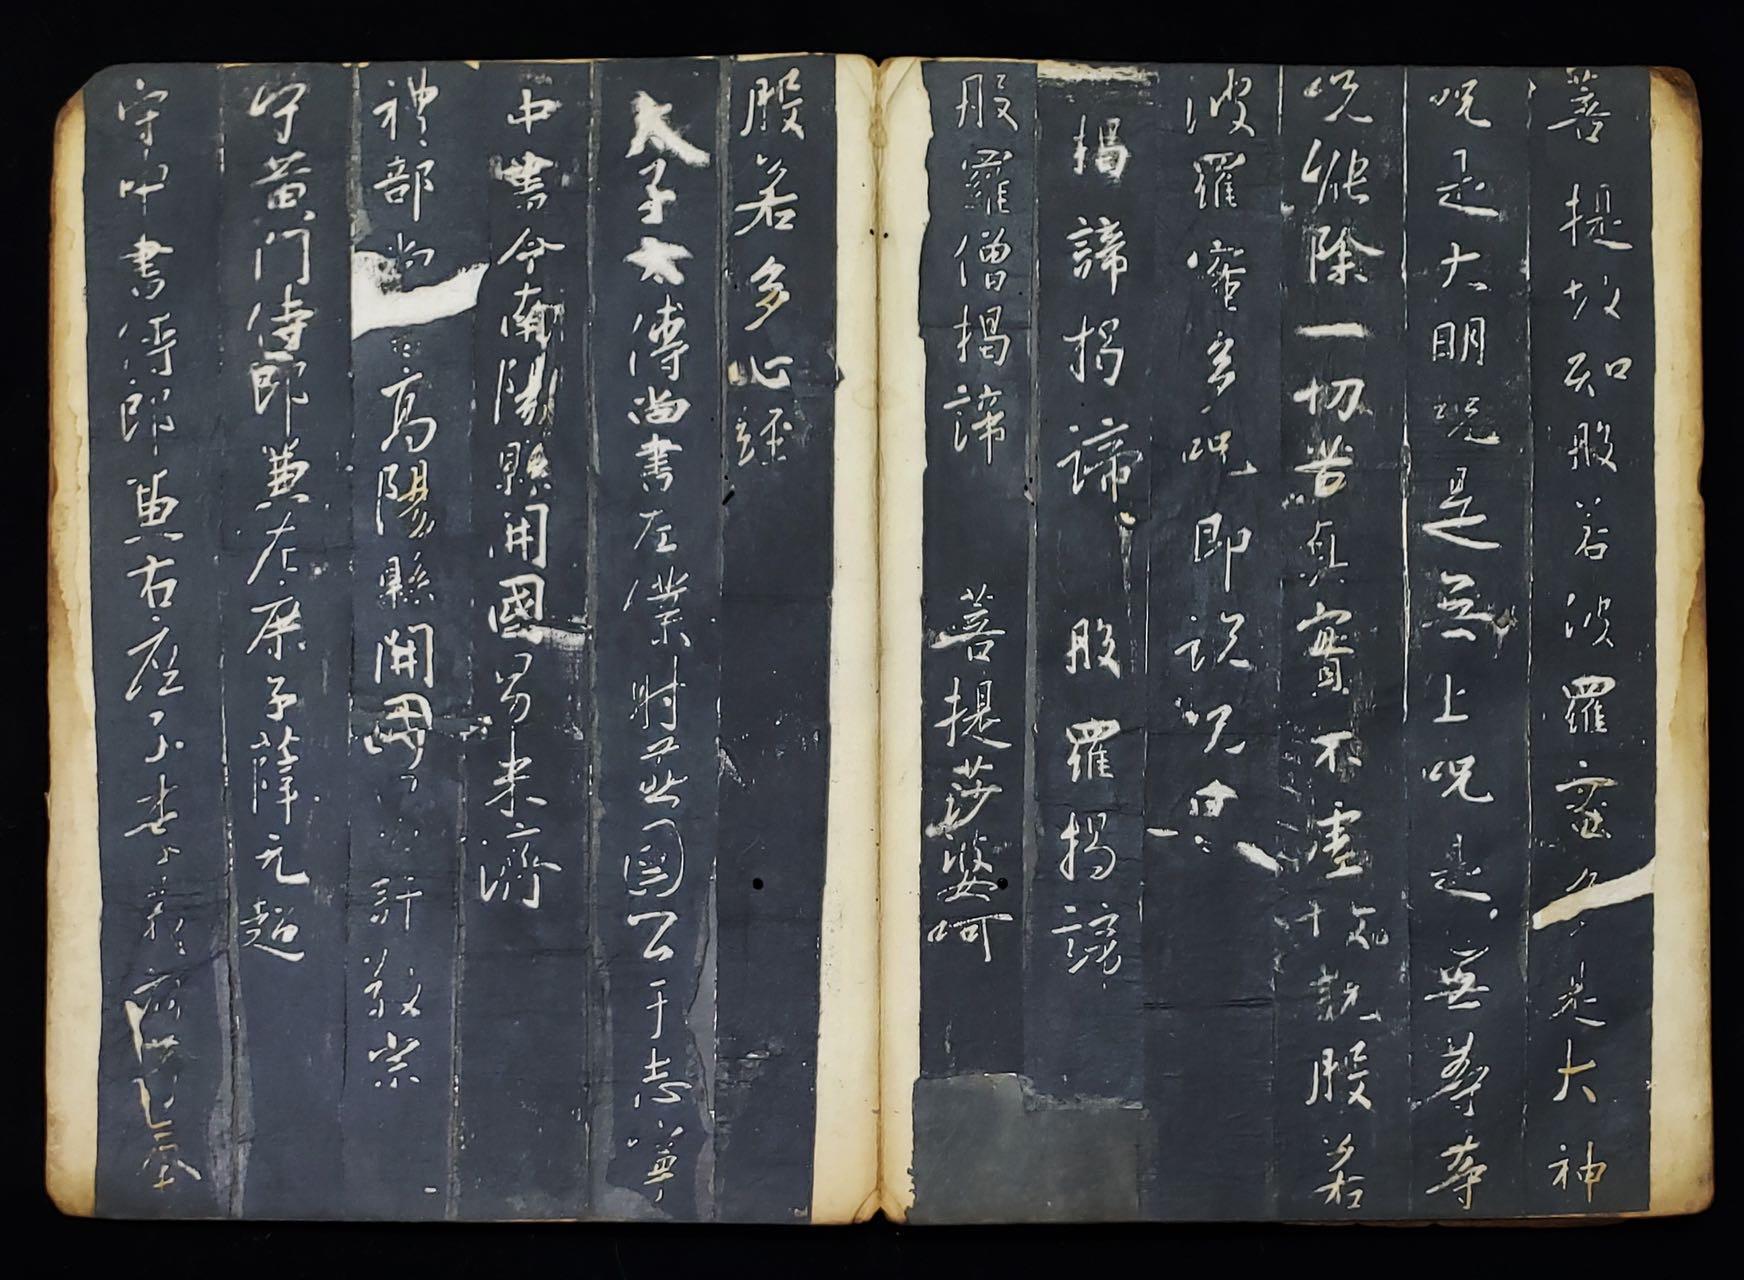 菩提故知般若波羅蜜多是大神
呪是大明呪是無上呪是無等等
呪能除一切苦真實不虛故說般若
波羅蜜多呪即說呪曰
揭諦揭諦 般羅揭諦
般羅僧揭諦 菩提莎婆呵
般若多心經
太子太傅尚書左僕射燕國公于志寧
中書令南陽縣開國男來濟
禮部尚 高陽縣開國 許敬宗
守黃門侍郎兼左庶子薛元超
守中書侍郎兼右庶子李義府奉